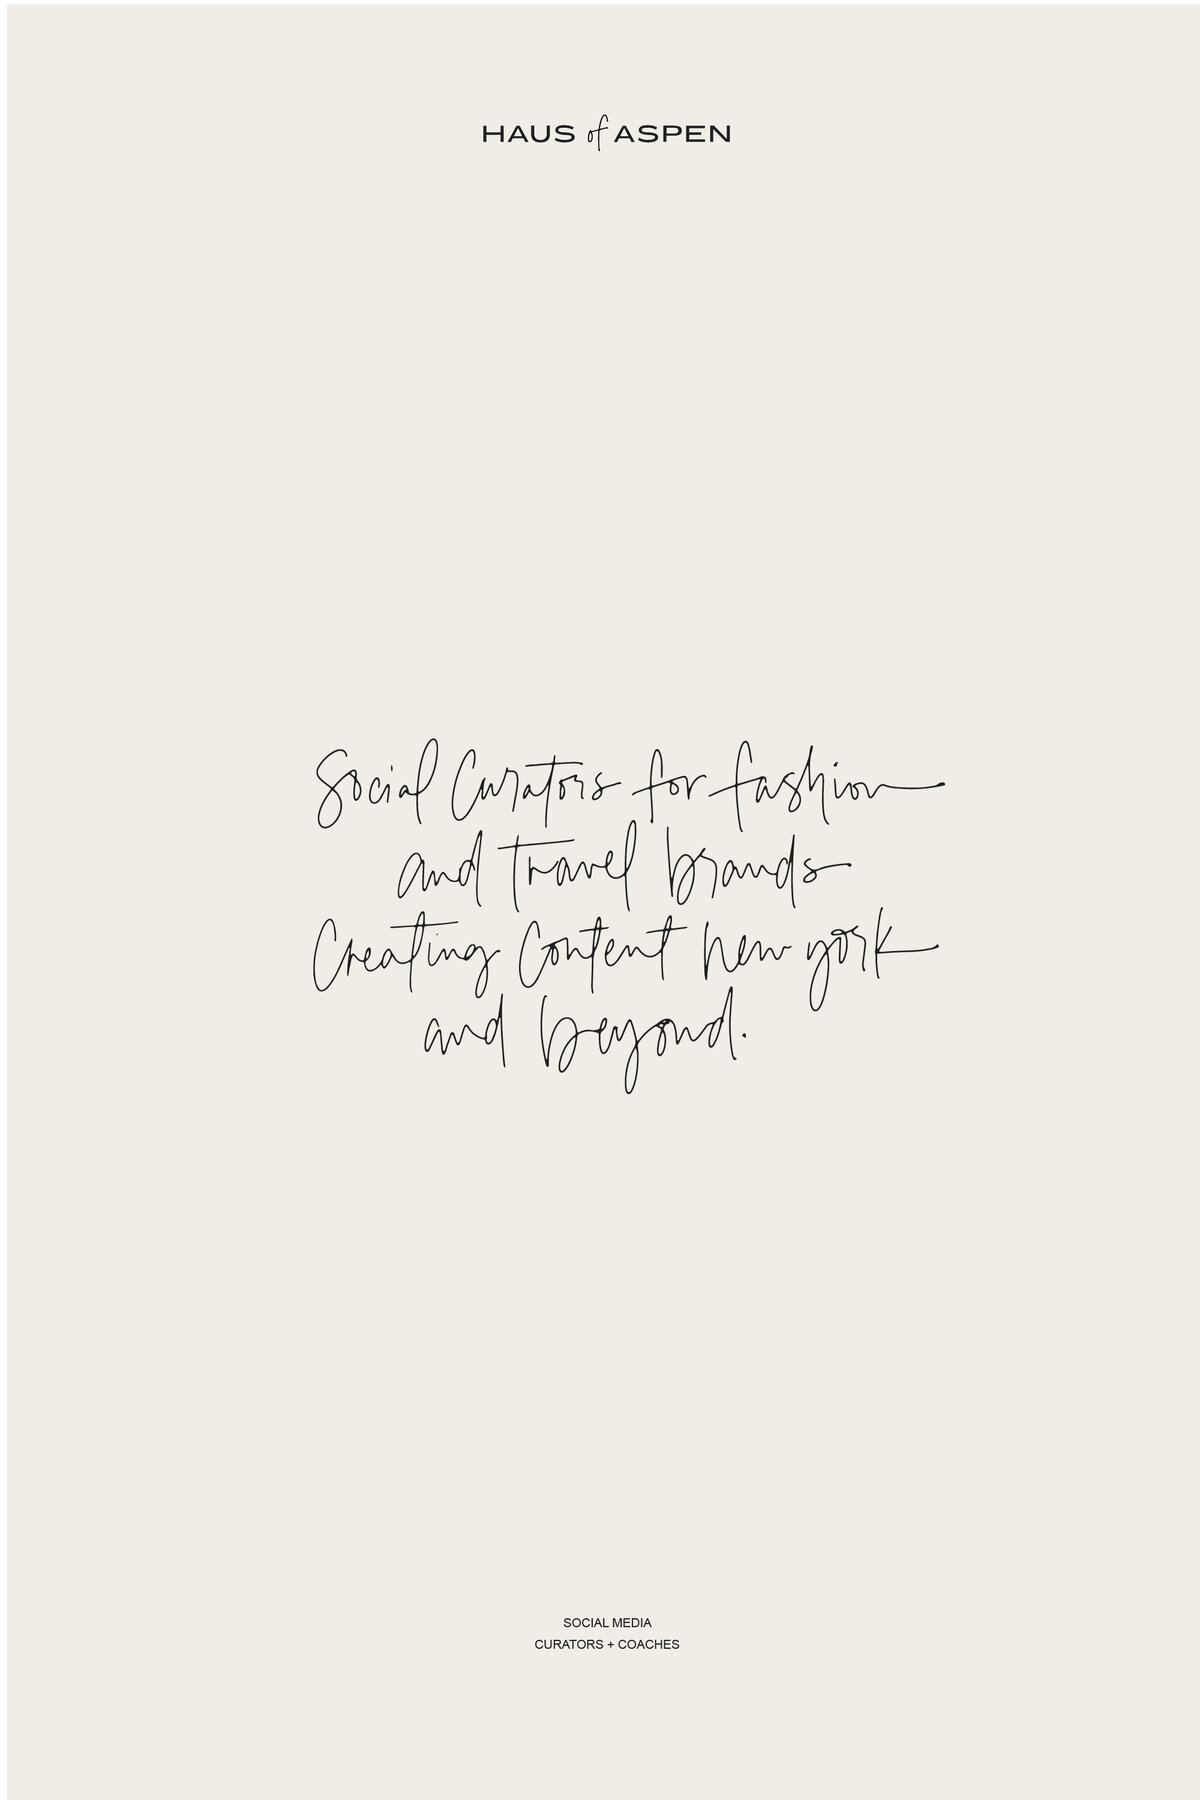 HAUS of ASPEN
Social Curators for fashion
and travel brands
Creating Content new york
and beyond.
SOCIAL MEDIA
CURATORS + COACHES